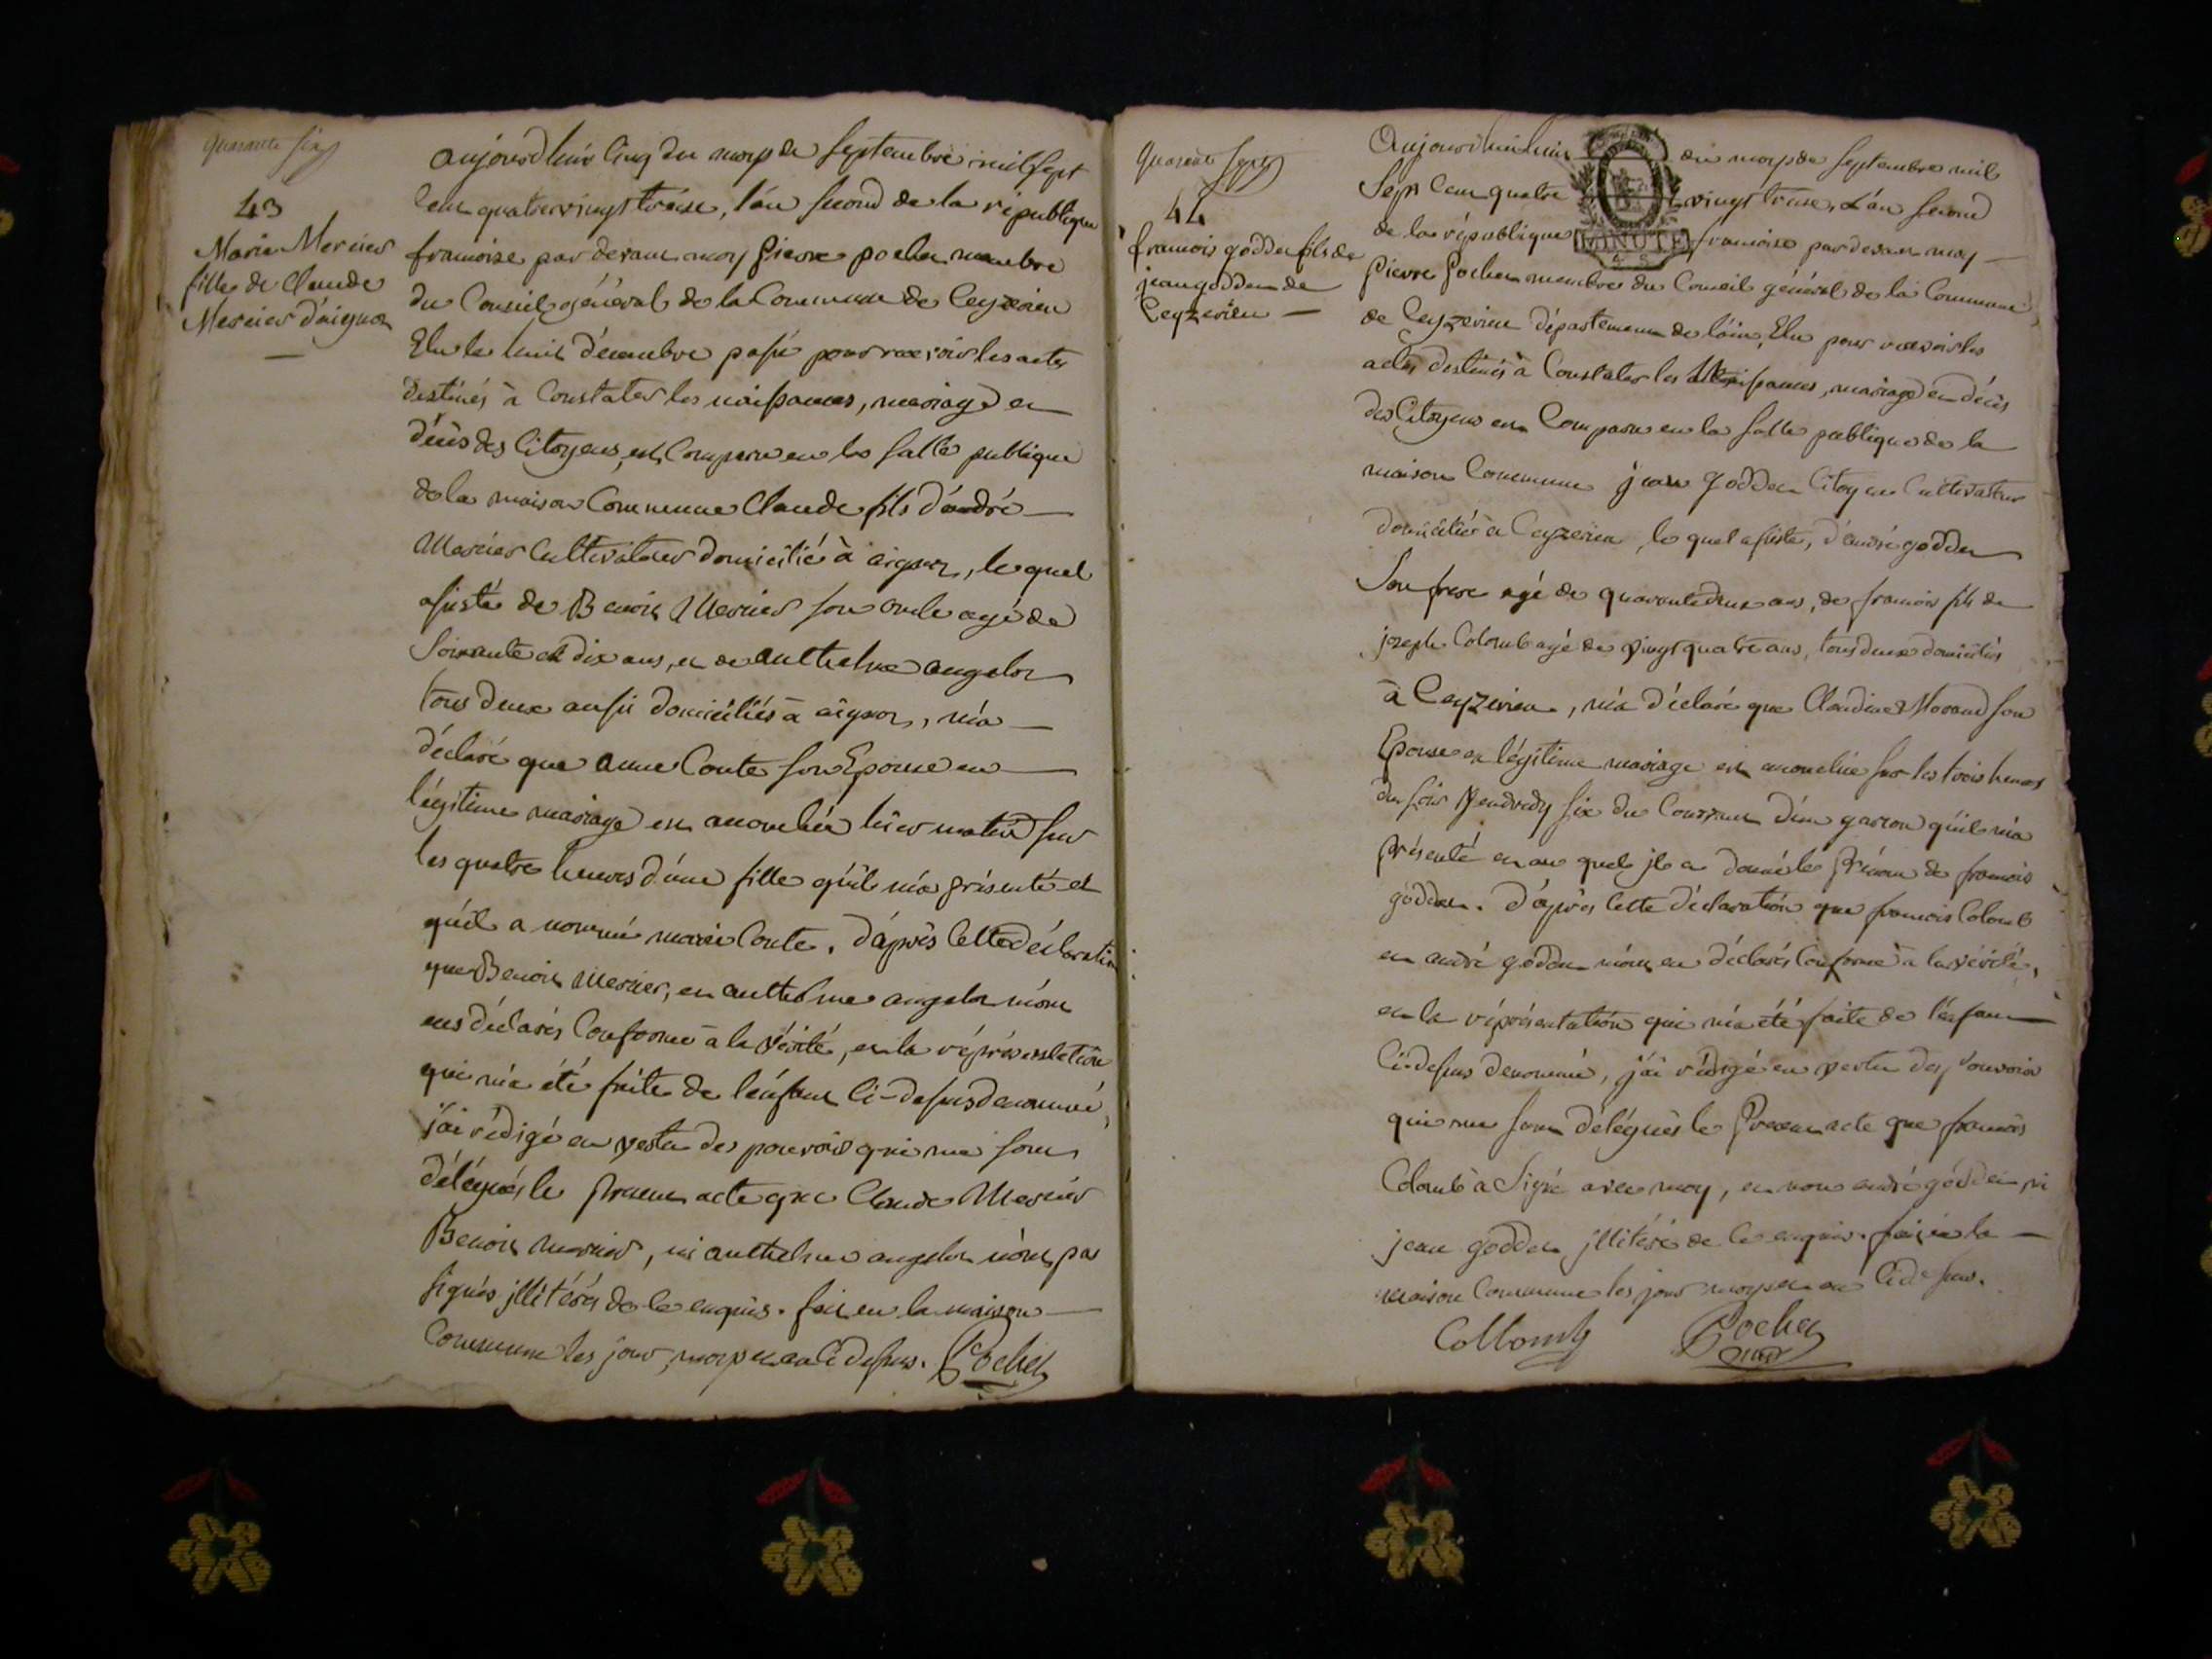 quarante six
43
Marie Mercier
fille de Claude
Mercier d'aignoz
aujourd'huir cinq du moys de septembre mil sept
cent quatrevingt treise, l'an second de la république
francoise par devant moy pierre pochet membre
du Conseil général de la Commune de Ceyzerieu
Elu le huit décembre passé pour recevoir les actes
destinés à Constater les naissances, mariage et
décès des Citoyens, est Comparu en la salle publique
de la maison Commune Claude fils d'andré
Mercier Cultivateur domicilié à aignoz, le quel
assisté de Benoit Mercier son oncle agé de
soixante et dix ans, et de anthelme angelot
tous deux aussi domiciliés à aignoz, m'a
déclaré que anne Conte son Epouse en
légitime mariage est accouchée hier matin sur
les quatre heures d'une fille qu'il m'a présenté et
qu'il a nommé marie Conte. d'après Cette déclaration
que Benoit Mercier, et anthelme angelot m'ont
eus déclarés Conforme à la vérité, et la réprésentation
qui m'a été faite de l'enfant Ci-dessus denommé,
j'ai rédigé en vertu des pouvoirs qui me sont
délégués le present acte que Claude Mercier
Benoit Mercier, ni anthelme angelot n'ont pas
signés jllitérés de ce enquis. fait en la maison
Commune les jour, moys et an Ci dessus. Pochet
quarante sept
44
francois godden fils de
jean godden de
Ceyzerieu
Aujourd'hui huit du moys de septembre mil
Sept Cent quatre vingt treise, L'an second
de la république francoise par devant moy
MINUTE
4. S
Pierre Pochet membre du Conseil général de la Commune
de Ceyzerieu département de l'ain, Elu pour recevoir les
actes destinés à Constater les Naissances, mariage et décès
des Citoyens est Comparu en la salle publique de la
maison Commune jean godden Citoyen Cultivateur
domicilié à Ceyzerieu, le quel assisté, d'andré godden
Son frere agé de quarante deux ans, de francois fils de
joseph Colomb agé de vingt quatre ans, tous deux domiciliés
à Ceyzerieu, m'a déclaré que Claudine Morand son
Epouse en légitime mariage est accouchée sur les trois heures
du soir Vendredy six du Courrant d'un garcon qu'il m'a
présenté et au quel jl a donné le Prénom de francois
godden. d'après Cette déclaration que francois Colomb
et andré godden m'ont eu déclarés Conforme à la vérité,
et la réprésentation qui m'a été faite de l'enfant
Ci-dessus denommé, j'ai rédigé en vertu des Pouvoirs
qui me sont délégués le Present acte que francois
Colomb à Signé avec moy, et non andré godden, ni
jean godden jllitéré de ce enquis. fait en la
maison Commune les jour moys et an Cidessus.
Collomb Pochet